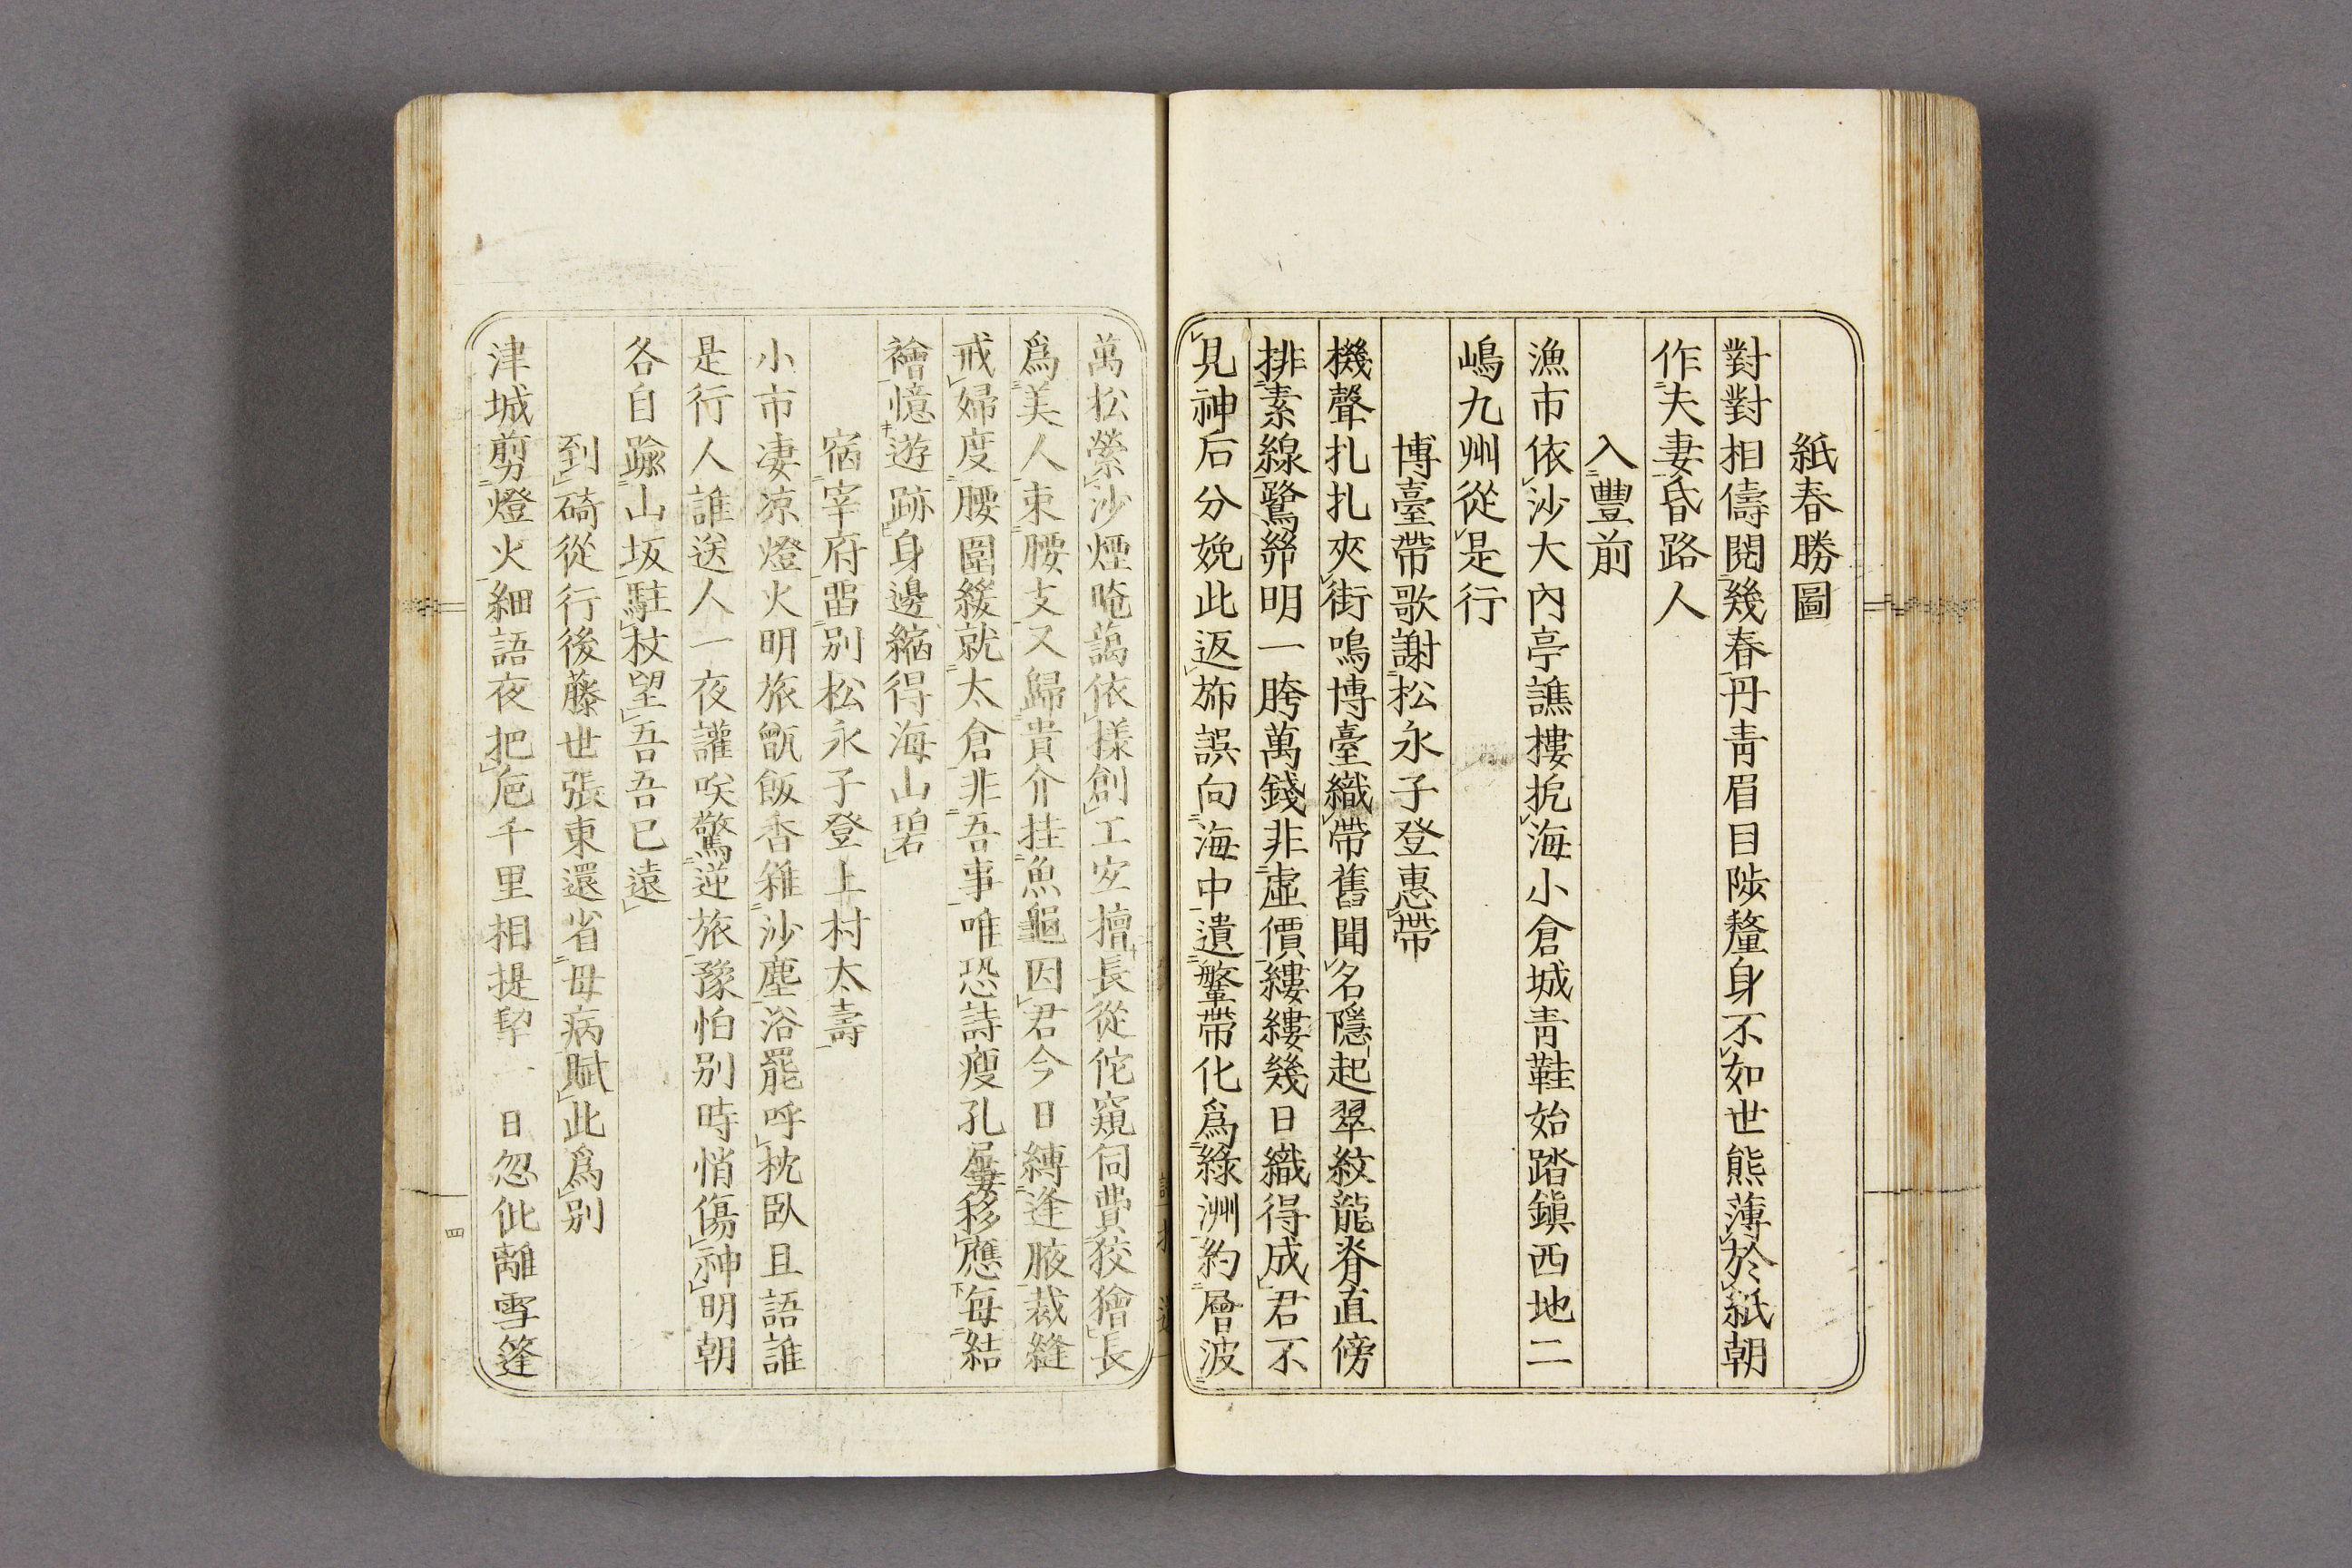 紙春勝圖
對對相儔閱幾春丹青眉目陟釐身不如世態薄於紙朝
作夫妻昏路人
入豐前
漁市依沙大內亭譙摟抭海小倉城青鞋始踏鎮西地二
嶋九州從是行
博臺帶歌謝松永子登惠帶
機聲扎扎夾街鳴博臺織帶舊聞名隱起翠紋龍脊直傍
排素線鷺明一胯萬錢非虛價縷縷幾日織得成君不
見神后分娩此返旆誤向海中遺鞶帶化爲綠洲約層波
萬松縈沙煙晻藹依樣創工安擅長從佗窺伺費狡獪長
爲美人束腰支又歸貴介挂魚龜因君今日縛逢腋裁縫
戒婦度腰圍緩就太倉非吾事唯恐詩瘦孔屢移應每結
襘憶遊跡身邊縮得海山碧
宿宰府畱別松永子登上村太壽
小市凄凉燈火明旅甑飯香雜沙塵浴罷呼枕臥且語誰
是行人誰送人一夜讙唉驚逆旅豫怕別時悄傷神明朝
各自踰山坂駐杖望吾吾已遠
到碕從行後藤世張東還省母病賦此爲別
津城剪燈火細語夜把巵千里相提挈一日忽仳離雪篷
四